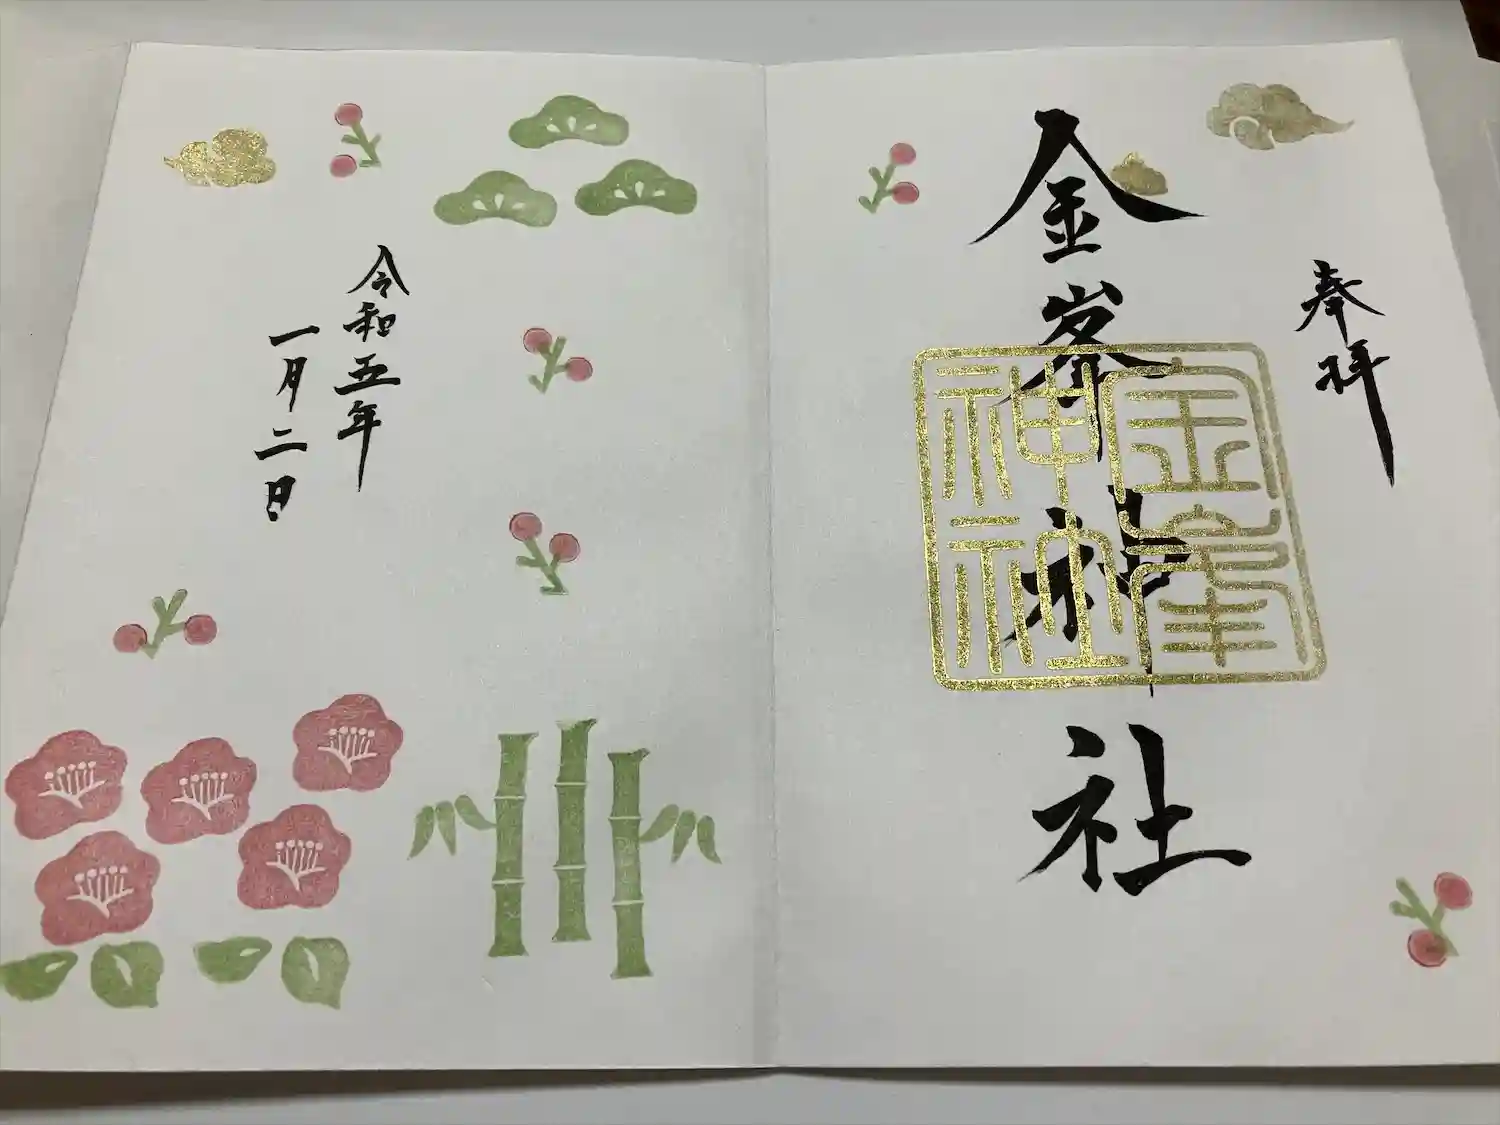 奉拝
金峯神社
金峯
神社
令和五年
一月二日